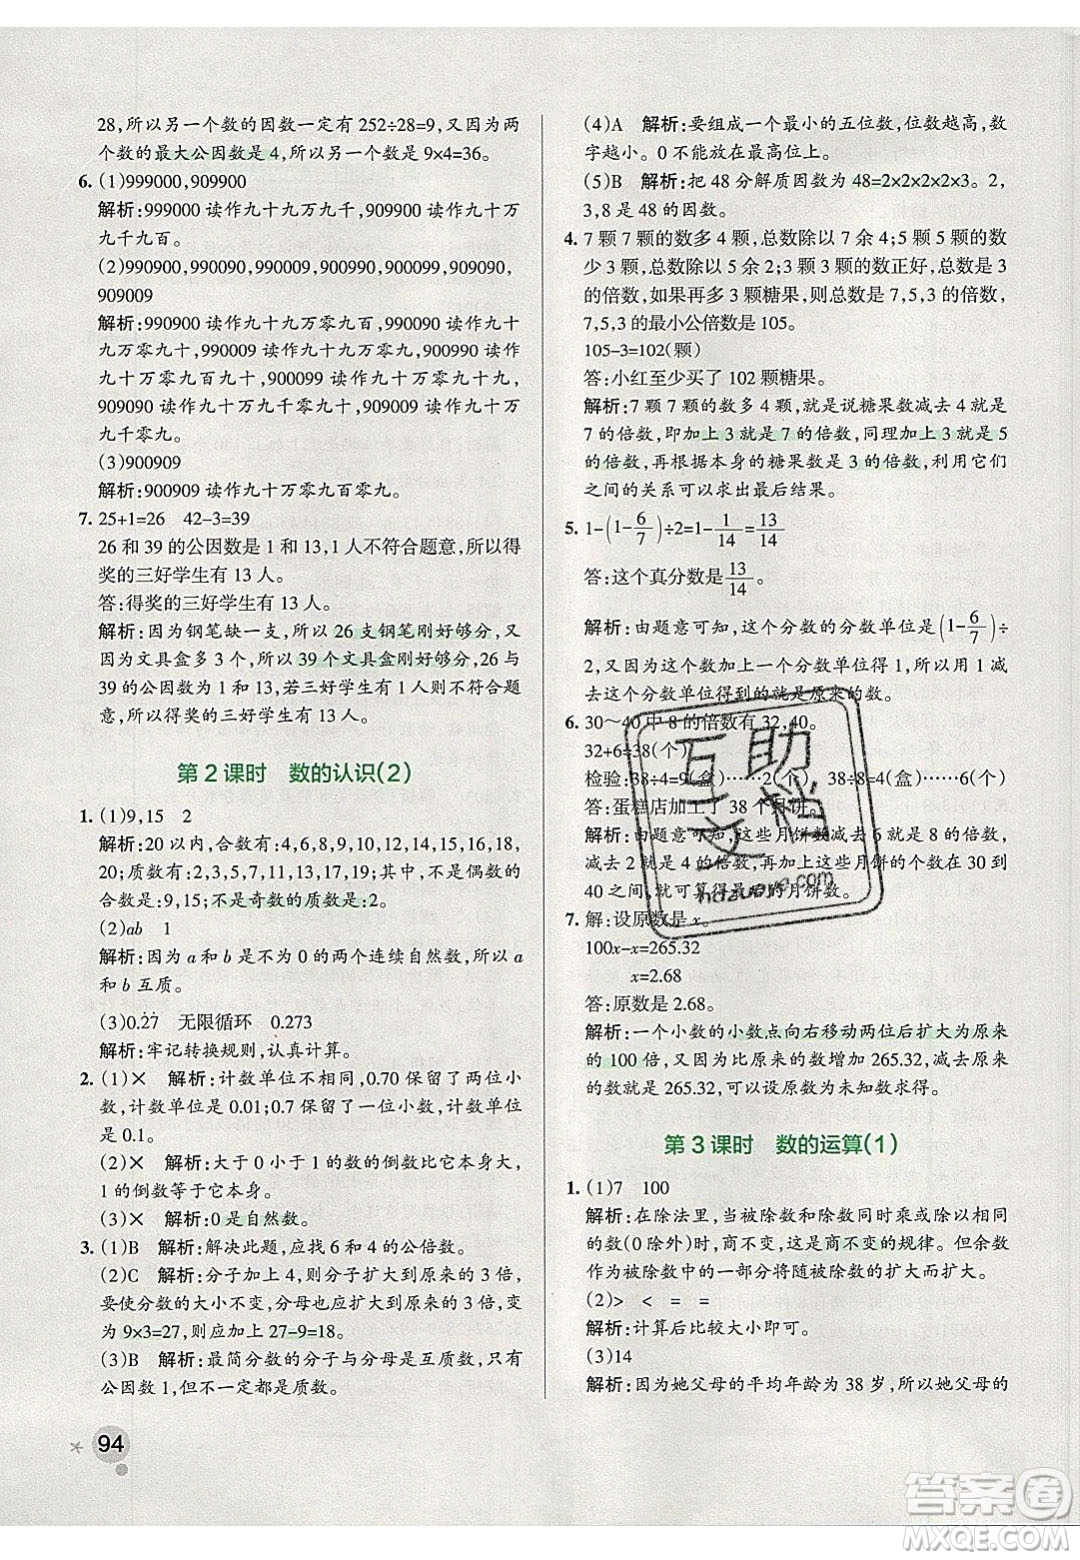 28,所以另一个数的因数一定有 252÷28=9,又因为两
个数的最大公因数是 4,所以另一个数是 9×4=36。
6. (1)999000,909900
解析:999000 读作九十九万九千,909900 读作九十万
九千九百。
(2)990900,990090,900990,900099,909090,
909009
解析:990900 读作九十九万零九百,990090 读作九十
九万零九十,900990 读作九十万零九百九十,900099 读作
九十万零九十九,909090 读作九十万九千零九十,909009 读作九十万
九千零九。
(3)900909
解析:900909 读作九十万零九百零九。
7. 25+1=26　42-3=39
26 和 39 的公因数是 1 和 13,1 人不符合题意,所以得
奖的三好学生有 13 人。
答:得奖的三好学生有 13 人。
解析:因为钢笔缺一支,所以 26 支钢笔刚好够分,又
因为文具盒多 3 个,所以 39 个文具盒刚好够分,26 与
39 的公因数有 1 和 13,若三好学生有 1 人,不符合题
意,所以得奖的三好学生有 13 人。
第 2 课时　数的认识(2)
1. (1)9,15　2
解析:20 以内,合数有:4,6,8,9,10,12,14,15,16,18,
20;质数有:2,3,5,7,11,13,17,19,其中,不是偶数的
合数是:9,15;不是奇数的质数是:2。
(2)ab　1
解析:因为 a 和 b 是不为 0 的两个连续自然数,所以 a
和 b 互质。
(3)0.2̇7̇　无限循环　0.273
解析:牢记转换规则,认真计算。
2. (1)×　解析:计数单位不相同,0.70 保留了两位小
数,计数单位是 0.01;0.7 保留了一位小数,计数单位
是 0.1。
(2)×　解析:大于 0 小于 1 的数的倒数比它本身大,
1 的倒数等于它本身。
(3)×　解析:0 是自然数。
3. (1)B　解析:解决此题,应找 6 和 4 的公倍数。
(2)C　解析:分子加上 4,则分子扩大到原来的 3 倍,
要使分数的大小不变,分母也应扩大到原来的 3 倍,变
为 9×3=27,则应加上 27-9=18。
(3)B　解析:最简分数的分子与分母是互质数,只有
公因数 1,但不一定都是质数。
94
(4)A　解析:要组成一个最小的五位数,位数越高,数
字越小。0 不能放在最高位上。
(5)B　解析:把 48 分解质因数为 48=2×2×2×2×3。2,
3,8 是 48 的因数。
4. 7 颗 7 颗的数多 4 颗,总数除以 7 余 4;5 颗 5 颗的数
少 3 颗,总数除以 5 余 2;3 颗 3 颗的数正好,总数是 3
的倍数,如果再多 3 颗糖果,则总数是 7,5,3 的倍数,
7,5,3 的最小公倍数是 105。
105-3=102(颗)
答:小红至少买了 102 颗糖果。
解析:7 颗 7 颗的数多 4 颗,就是说糖果数减去 4 就是
7 的倍数,即加上 3 就是 7 的倍数,同理加上 3 就是 5
的倍数,再根据本身的糖果数是 3 的倍数,利用它们
之间的关系可以求出最后结果。
5. 1-(1-6/7)÷2=1-1/14=13/14
答:这个真分数是13/14。
解析:由题意可知,这个分数的分数单位是(1-6/7)÷
2,又因为这个数加上一个分数单位得 1,所以用 1 减
去这个分数单位得到的就是原来的数。
6. 30～40 中 8 的倍数有 32,40。
32+6=38(个)
检验:38÷4=9(盒)……2(个)　38÷8=4(盒)……6(个)
答:蛋糕店加工了 38 个月饼。
解析:由题意可知,这些月饼数减去 6 就是 8 的倍数,
减去 2 就是 4 的倍数,再加上这些月饼的个数在 30 到
40 之间,就可算得最后的月饼数。
7. 解:设原数是 x。
100x-x=265.32
x=2.68
答:原数是 2.68。
解析:一个小数的小数点向右移动两位后扩大为原来
的 100 倍,又因为比原来的数增加 265.32,减去原来
的数就是 265.32,可以设原数为未知数求得。
第 3 课时　数的运算(1)
1. (1)7　100
解析:在除法里,当被除数和除数同时乘或除以相同
的数(0 除外)时,商不变,这是商不变的规律。但余数
作为被除数中的一部分将随被除数的扩大而扩大。
(2)>　<　=　=
解析:计算后比较大小即可。
(3)14
解析:因为她父母的平均年龄为 38 岁,所以她父母的
互助
文档
hdzuoye.com
答案圈
MXQE.COM